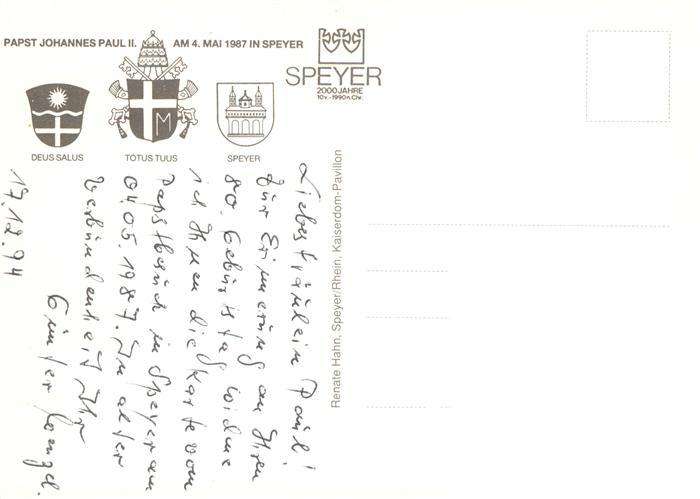 PAPST JOHANNES PAUL II. AM 4. MAI 1987 IN SPEYER
SPEYER
2000 JAHRE
10 v. - 1990 n. Chr.
DEUS SALUS
TOTUS TUUS
M
SPEYER
Liebes Fräulein Paul!
Zur Erinnerung an Ihren
80. Geburtstag widme
ich Ihnen die Karte vom
Papstbesuch in Speyer am
04.05.1987. In alter
Verbundenheit Ihr
Günter
17.12.94
Renate Hahn, Speyer/Rhein, Kaiserdom-Pavillon